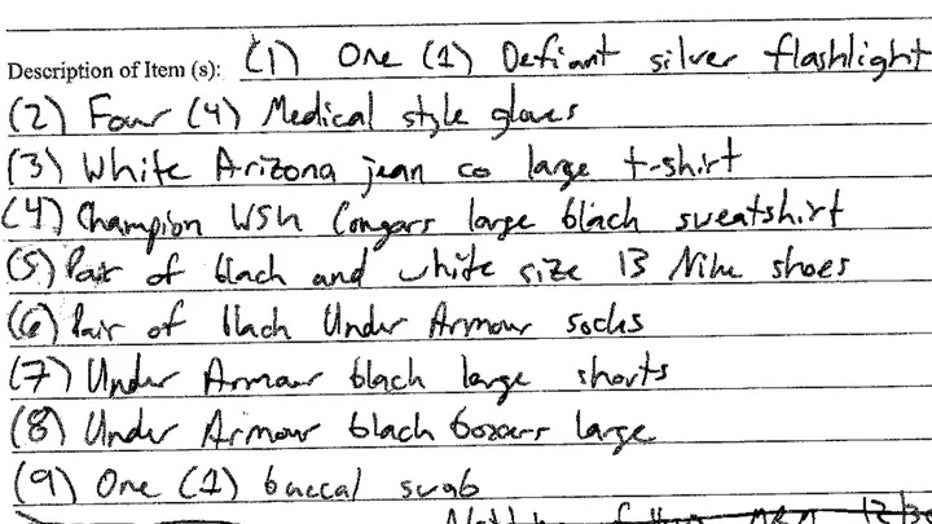 Description of Item (s): (1) One (1) Defiant silver flashlight
(2) Four (4) Medical style gloves
(3) White Arizona jean co large t-shirt
(4) Champion WSU Cougars large black sweatshirt
(5) Pair of black and white size 13 Nike shoes
(6) Pair of black Under Armour socks
(7) Under Armour black large shorts
(8) Under Armour black boxers large
(9) One (1) buccal swab